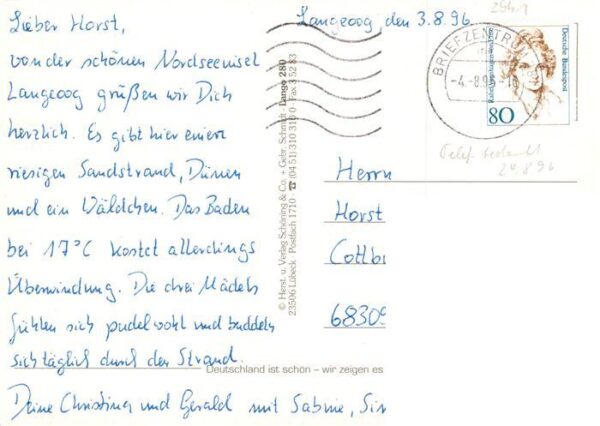 Lieber Horst,
von der schönen Nordseeinsel
Langeoog grüßen wir Dich
herzlich. Es gibt hier einen
riesigen Sandstrand, Dünen
und ein Wäldchen. Das Baden
bei 17°C kostet allerdings
Überwindung. Die drei Mädels
fühlen sich pudelwohl und buddeln
sich täglich durch den Strand.
Deine Christina und Gerald mit Sabine, Sim
Langeoog, den 3.8.96
© Herst. u. Verlag Schöning & Co. + Gebr. Schmidt · Lango 280
23506 Lübeck Postfach 1710 ☎ (04 51) 310 310 Fax 3 52 83
Deutschland ist schön – wir zeigen es
BRIEFZENTRUM
-4.-8.96-
Deutsche Bundespost
80
24.8.96
Herrn
Horst
Cottb
68309